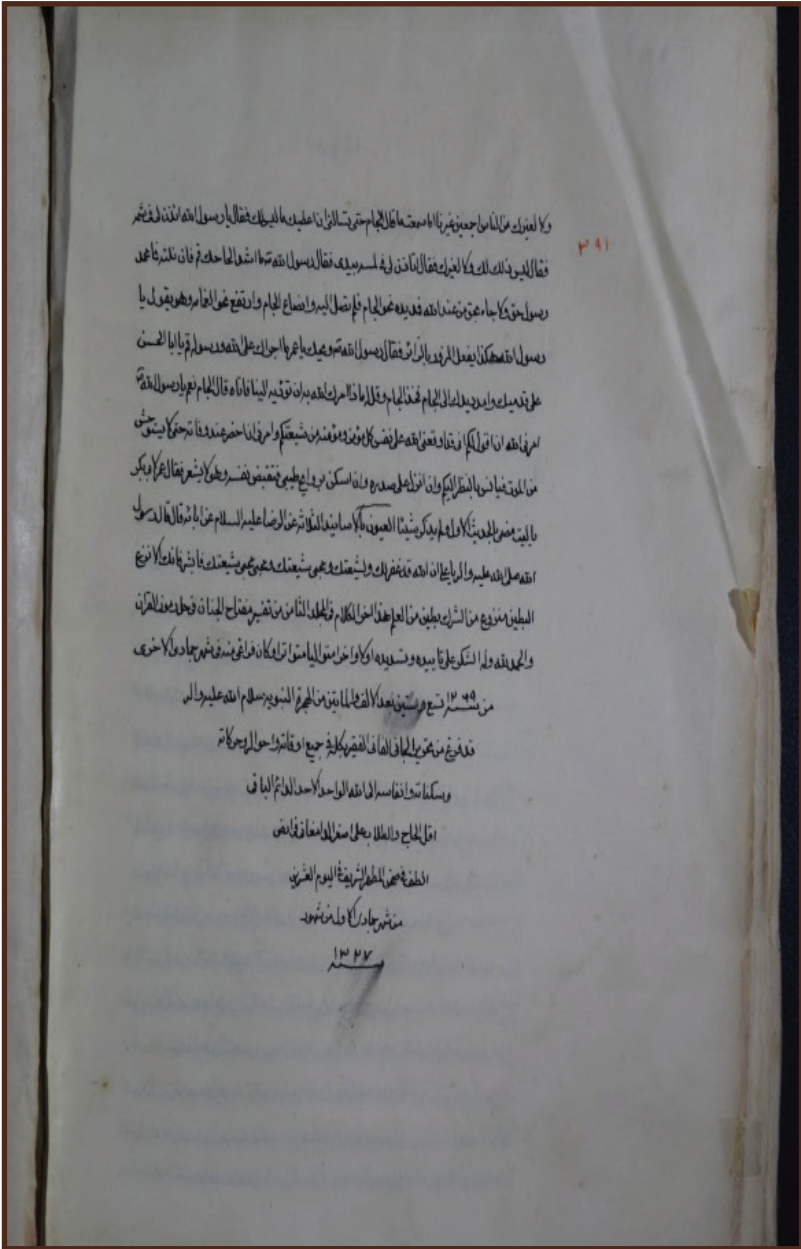 ولا لغيرك من الناس اجمعين غيرنا اما سمعته ما قال الجام حتى تسالنی ان اعطيك ما ليس لك فقال يا رسول الله ائذن لی فی شمه
٣٩١
فقال ليس ذلك لك ولا لغيرك فقال اتاذن لی فی لمسه بيدی فقال رسول الله ص ما اشد الحاحك قم فان نلته فما محمد
رسول حق ولا جاء بحق من عند الله فمد يده نحو الجام فلم تصل اليه وانصاع الجام وارتفع نحو الغمامه وهو يقول يا
رسول الله هكذا يفعل المزور بالزائر فقال رسول الله ص ويحك يا عمر ما اجراك على الله ورسوله قم يا ابا الحسن
على قدميك وامدد يدك الى الجام فخذ الجام وقل له ماذا امرك الله به ان توديه الينا فاتاه قال الجام نعم يا رسول الله ص
امرنی الله ان اقول لكم انی قد اوقفنی الله على نفس كل مؤمن ومؤمنه من شيعتكم وامرنی ان احضر عند وفاته حتى لا يستوحش
من الموت فيانس بالنظر اليكم وان انزل على صدره وان اسكن بروايح طيبی فتقبض نفسه وهو لا يشعر فقال عمر لابی بكر
يا ليت مضى بالحديث الاول ولم يذكر شيئا العيون بالاسانيد الثلاثه عن الرضا عليه السلام عن ابائه قال قال رسول
الله صلى الله عليه واله يا علی ان الله قد غفر لك ولشيعتك ومحبی شيعتك ومحبی محبی شيعتك فابشر فانك الانزع
البطين منزوع من الشرك بطين من العلم هذا اخر الكلام فی المجلد الثامن من تفسير مفتاح الجنان فی حل رموز القران
والحمد لله وله الشكر على تاييده وتسديده اولا واخرا متواليا متواترا وكان فراغی منه فی شهر جمادی الاخری
من سنة ١٢٦٩ تسع وستين بعد الالف والماتين من الهجرة النبويه سلام الله عليه واله
قد فرغ من تحرير الجانی الفانی الفقير بكله فی جميع اوقاته واحواله وحركاته
وسكناته وانفاسه الى الله الواحد الاحد الدائم الباقی
اقل الحاج والطلاب علی اصغر الدامغانی فی ارض
الطف فی صحن المطهر الشريف فی اليوم العشرين
من شهر جمادی الاول من شهور
سنة ١٣٢٧